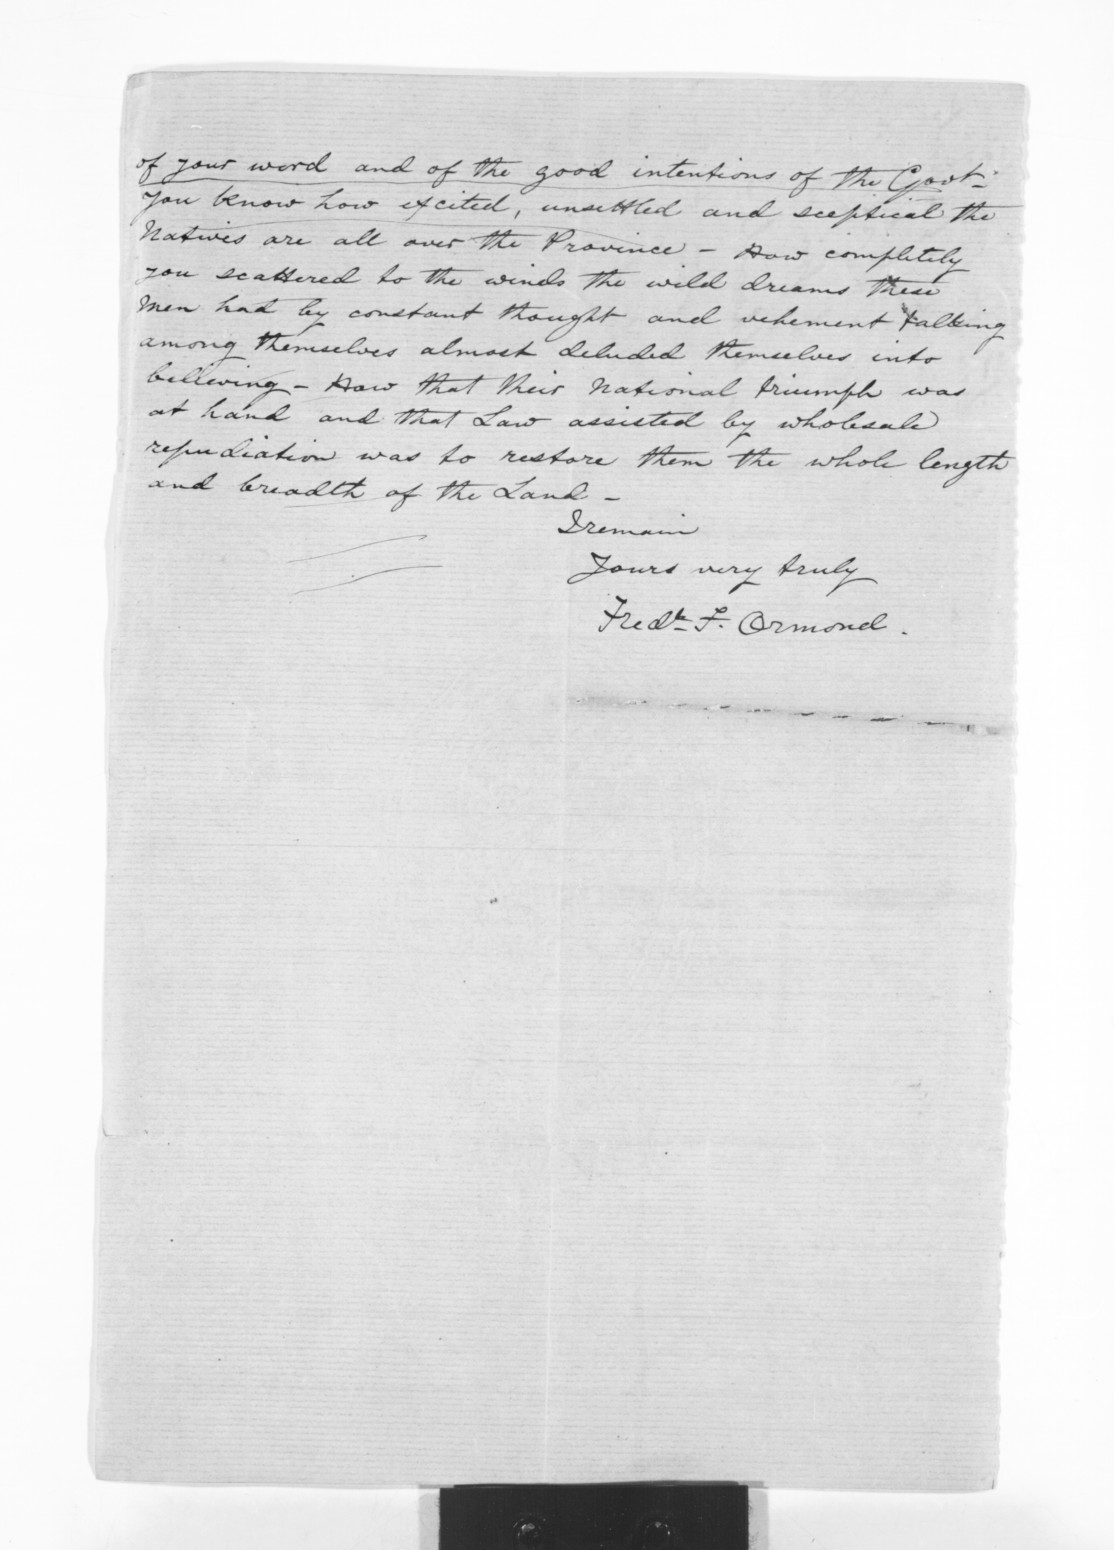 of your word and of the good intentions of the Govt.
You know how excited, unsettled and sceptical the
Natives are all over the Province - How completely
you scattered to the winds the wild dreams these
men had by constant thought and vehement talking
among themselves almost deluded themselves into
believing - How that their National triumph was
at hand and that Law assisted by wholesale
repudiation was to restore them the whole length
and breadth of the Land -
I remain
Yours very truly
Fredk F. Ormond.